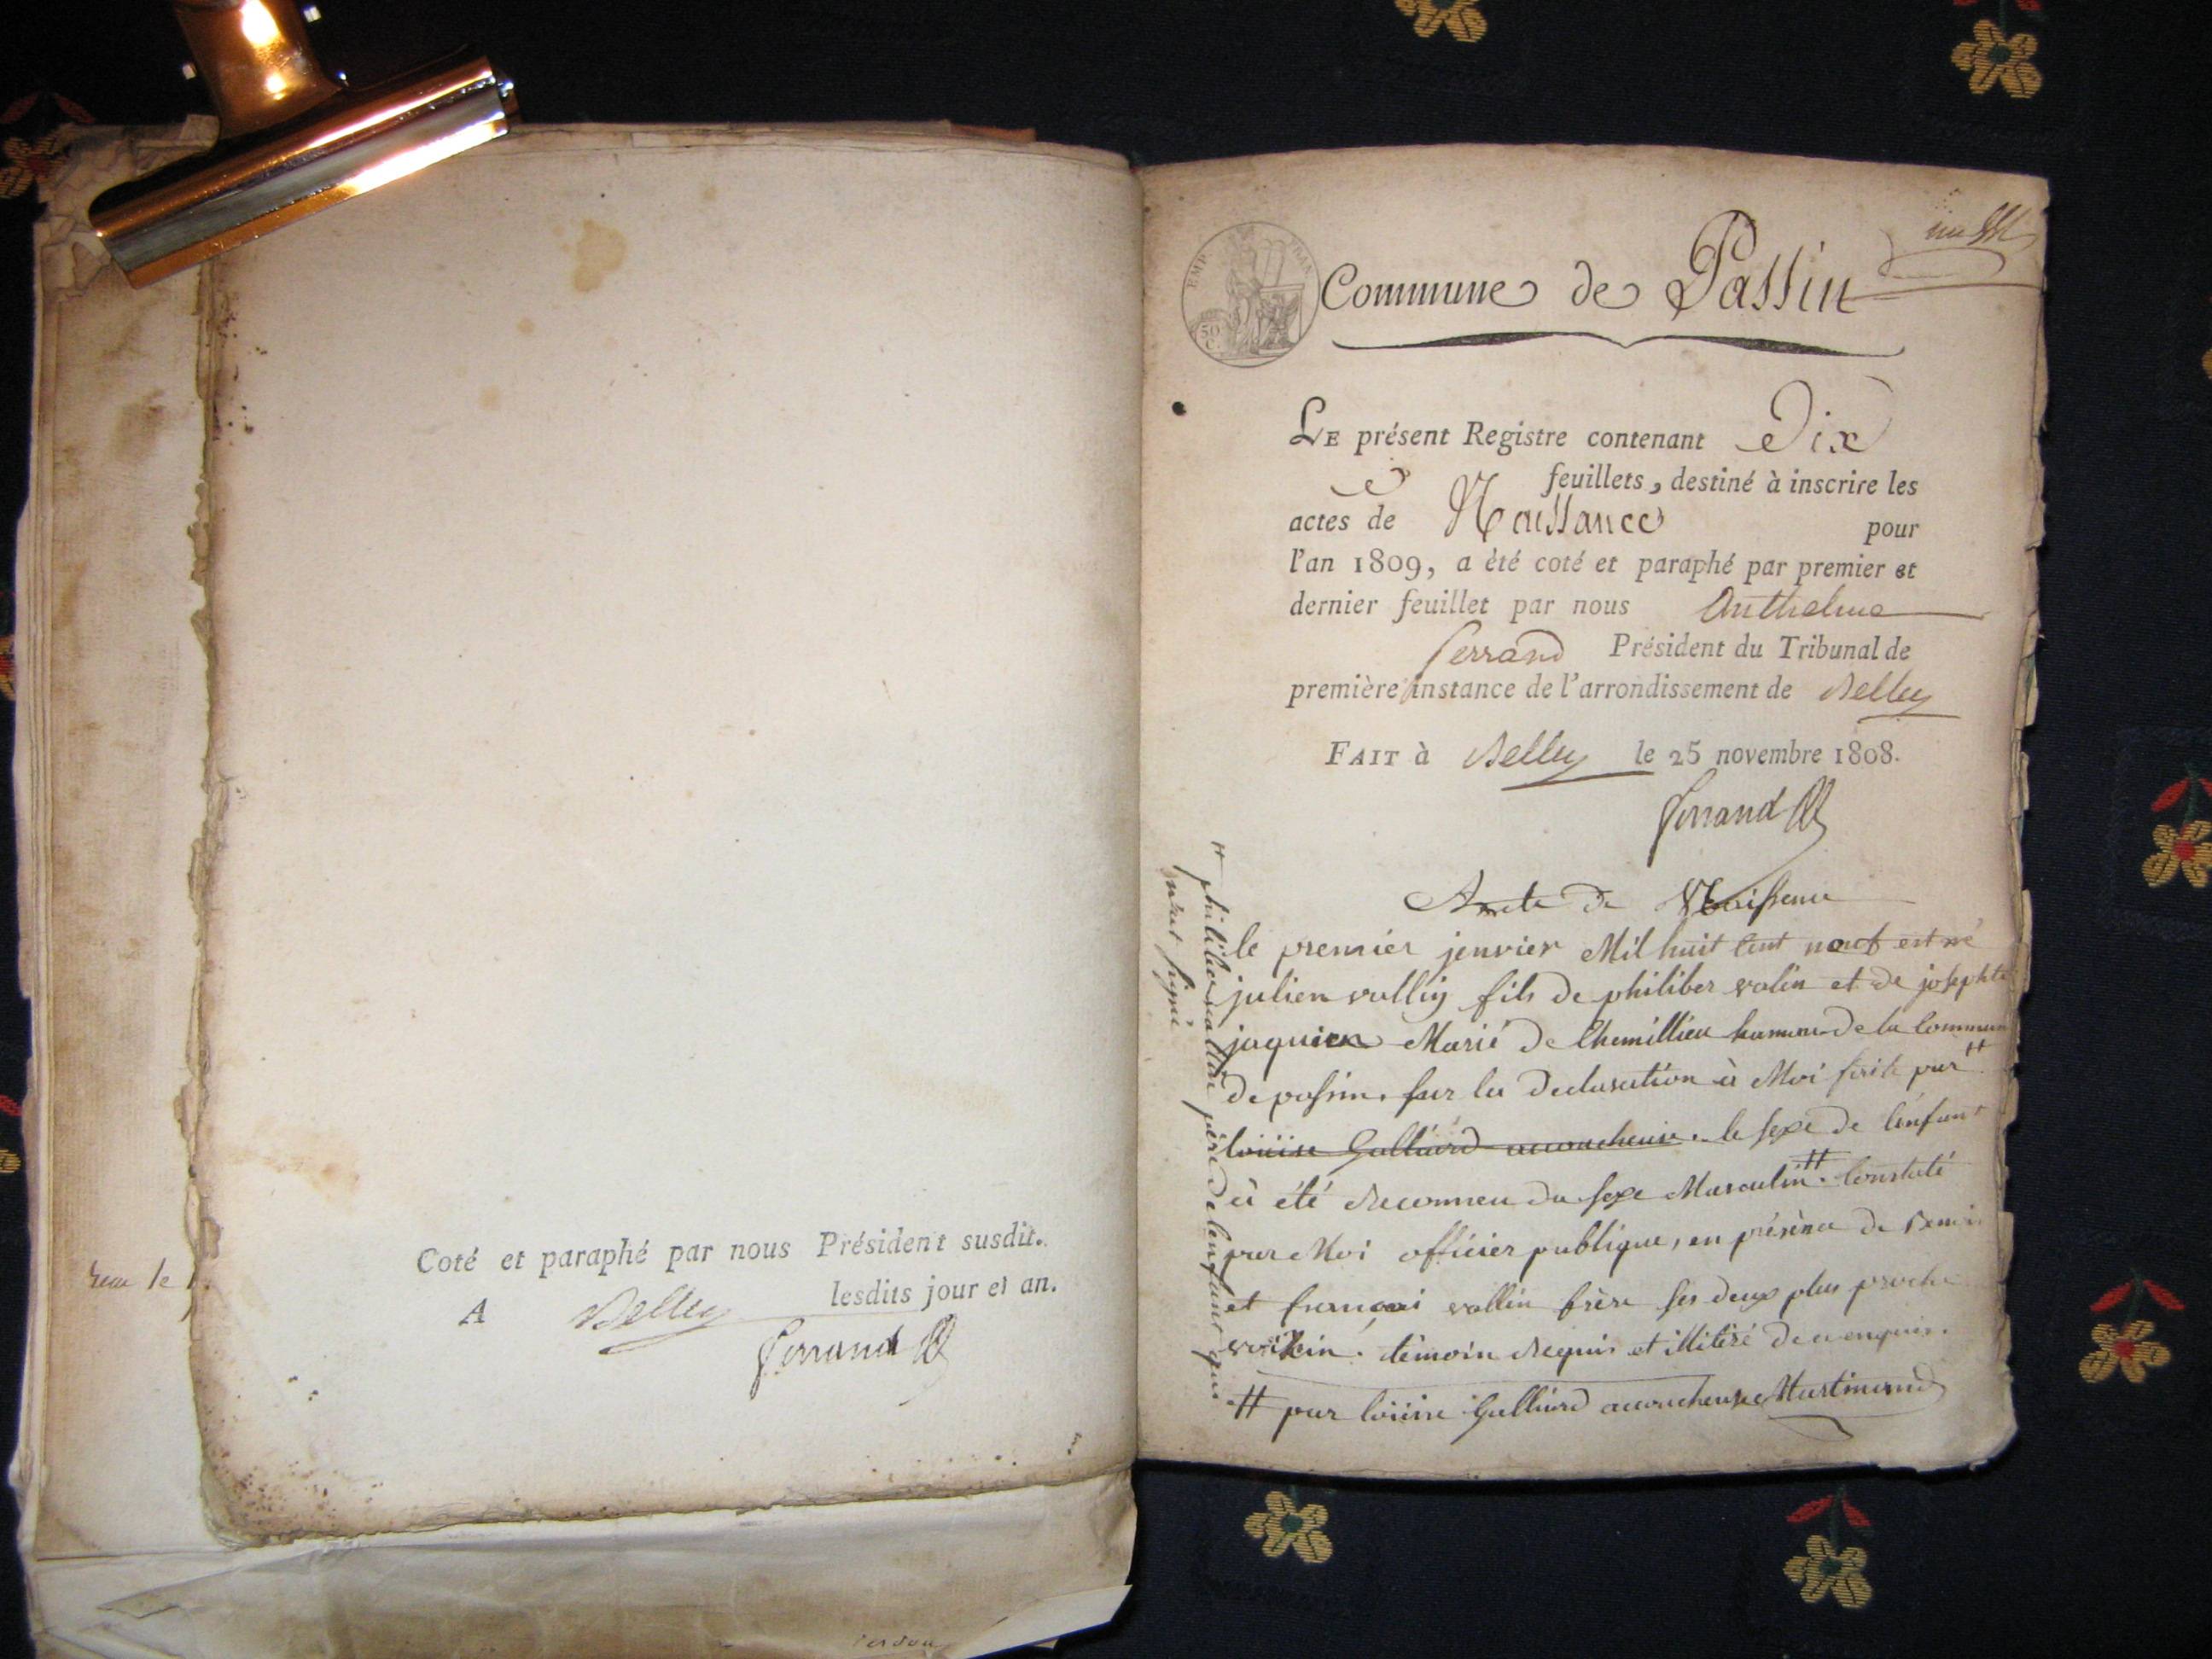 Coté et paraphé par nous Président susdit.
A Belley lesdits jour et an.
Ferrand
EMP. FRAN.
50 C.
Commune de Passin
LE présent Registre contenant Dix
feuillets, destiné à inscrire les
actes de Naissance pour
l'an 1809, a été coté et paraphé par premier et
dernier feuillet par nous Anthelme
Ferrand Président du Tribunal de
première instance de l'arrondissement de Belley
FAIT à Belley le 25 novembre 1808.
Ferrand
Acte de Naissence
le premier jenvier Mil huit Cent neuf est né
julien vallin fils de philiber valin et de josephte
jaquier Marié de Chemillieu hameau de la Commune
de passin. sur la declaration à Moi faite par #
loüise Galliard accoucheuse. le sexe de lenfant
à été reconneu du sexe Masculin #. Constaté
par Moi officier publique, en présence de
et françoi vallin frère ses deux plus proche
voisin. témoin requis et illitéré de ce enquis.
# par loüise Galliard accoucheuse Martinand
# philiber vallin père de lenfant qui